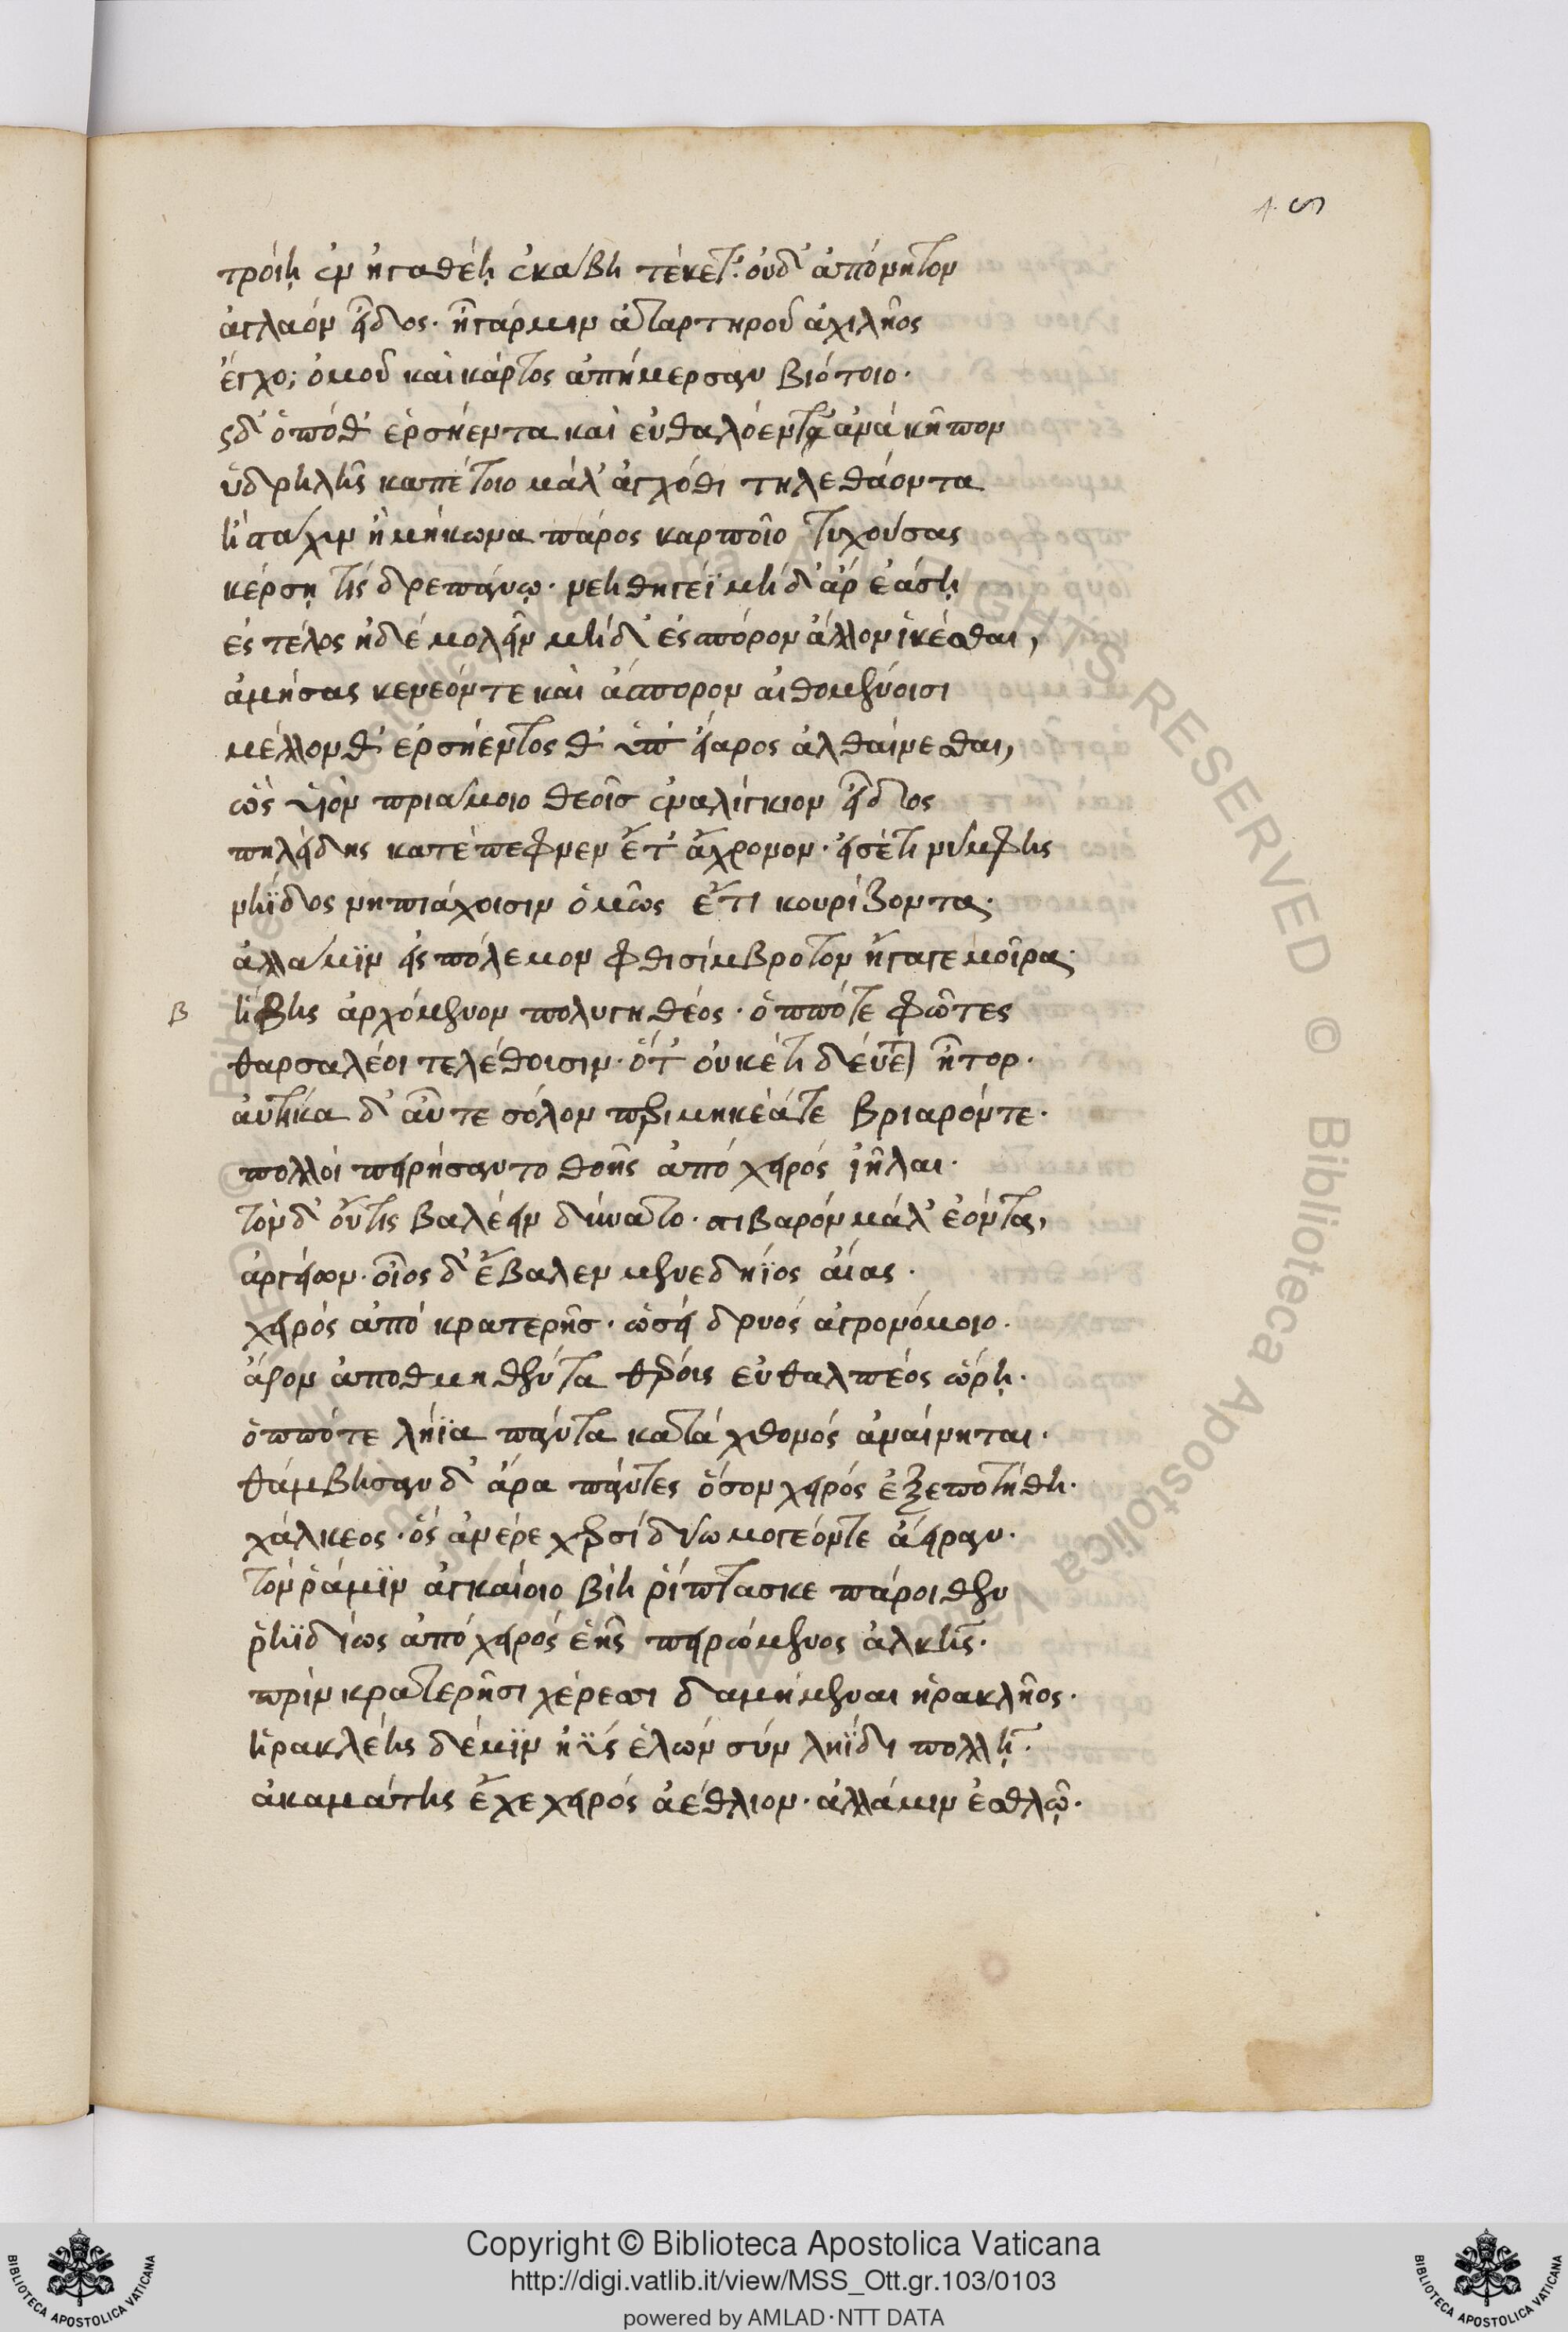 τρόιῃ ἐν ἠγαθέῃ ἑκάβη τέκετ'. οὐδ' ἀπόνητον
ἀγλαὸν εἶδος. ἦ γάρ μιν ἀταρτηροῦ ἀχιλῆος
ἔγχος ὁμοῦ καὶ κάρτος ἀπήμερσαν βιότοιο.
ὡς δ' ὁπόθ' ἑρσήεντα καὶ εὐθαλόεντα ἀνὰ κῆπον
ὑδρηλῆς καπέτοιο μάλ' ἀγχόθι τηλεθάοντα
ἢ στάχυν ἢ μήκωνα πάρος καρποῖο τυχούσας
κέρσῃ τίς δρεπάνῳ. νεηθηγέϊ μὴ δ' ἄρ' ἐάσῃ
ἐς τέλος ἠδὲ μολεῖν μὴ δ' ἐς σπόρον ἄλλον ἱκέσθαι,
ἀμήσας κενεόν τε καὶ ἄσπορον αἰθομένοισι
μέλλονθ' ἑρσήεντος θ' ὑπ' εἴαρος ἀλθαίνεσθαι,
ὡς υἱὸν πριάμοιο θεοῖσ ἐναλίγκιον εἶδος
πηλείδης κατέπεφνεν ἔτ' ἄχνοον. εἰσέτι νύμφης
νήϊδος νηπιάχοισιν ὁμῶς ἔτι κουρίζοντα.
ἀλλά μϊν εἰς πόλεμον φθισίμβροτον ἤγαγε μοῖρα.
β ἥβης ἀρχόμενον πολυγηθέος. ὁππότε φῶτες
θαρσαλέοι τελέθουσιν. ὅτ' οὐκέτι δεύεται ἦτορ.
αὐτίκα δ' αὖτε σόλον περιμηκέα τε βριαρόν τε.
πολλοὶ πειρήσαντο θοῆς ἀπὸ χειρὸς ἰῆλαι.
τὸν δ' οὔτις βαλέειν δύνατο. στιβαρὸν μάλ' ἐόντα,
ἀργείων. οἶος δ' ἔβαλεν μενεδήϊος αἴας.
χειρὸς ἀπὸ κρατερῆσ. ὡσεὶ δρυὸς ἀγρονόμοιο.
ἄζον ἀποθμηθέντα θέρους εὐθαλπέος ὥρῃ.
ὁππότε λήϊα πάντα κατὰ χθονὸς ἀναίνηται.
θάμβησαν δ' ἄρα πάντες ὅσον χειρὸς ἐξεποτήθη.
χάλκεος. ὃς ἀνέρε χερσὶ δύω μογέοντε ἄειραν.
τόν ῥά μϊν ἀγκαίοιο βίη ῥίπτασκε πάροιθεν
ῥηϊδίως ἀπὸ χειρὸς ἑῆς πειρώμενος ἀλκῆς.
πρὶν κρατερῇσι χέρεσσι δαμήμεναι ἡρακλῆος.
ἡρακλέης δέ μϊν ἠῢς ἑλὼν σὺν ληΐδι πολλῇ.
ἀκαμάτης ἔχε χειρὸς ἀέθλιον. ἀλλά μιν ἐσθλῷ.
Copyright © Biblioteca Apostolica Vaticana
http://digi.vatlib.it/view/MSS_Ott.gr.103/0103
powered by AMLAD·NTT DATA